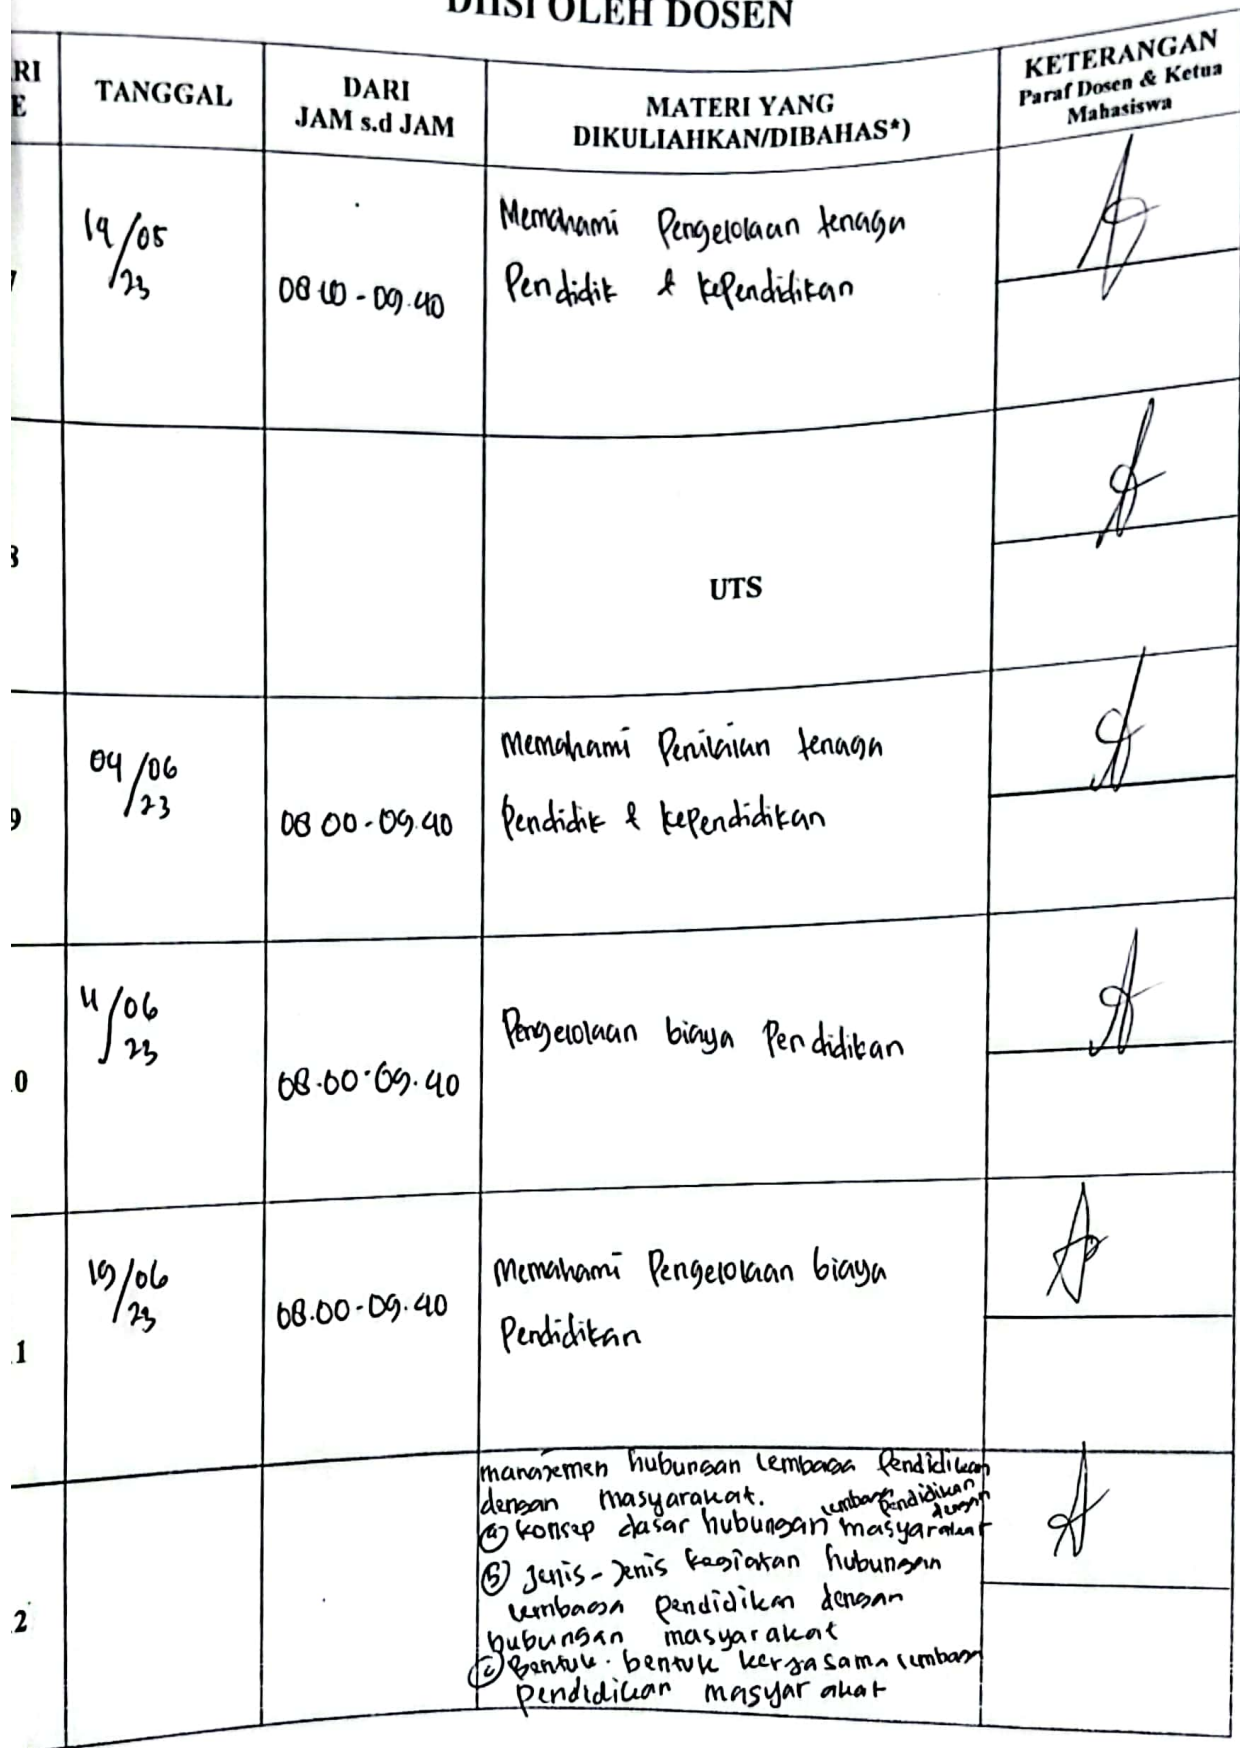 DIISI OLEH DOSEN
RI
E
TANGGAL
DARI
JAM s.d JAM
MATERI YANG
DIKULIAHKAN/DIBAHAS*)
KETERANGAN
Paraf Dosen & Ketua
Mahasiswa
7
19/05
23
08.00-09.40
Memahami Pengelolaan tenaga
Pendidik & kependidikan
8
UTS
9
04/06
23
08 00-09.40
Memahami Penilaian tenaga
Pendidik & kependidikan
0
11/06
23
08.00-09.40
Pengelolaan biaya Pendidikan
1
19/06
23
08.00-09.40
Memahami Pengelolaan biaya
Pendidikan
2
manajemen hubungan lembaga Pendidikan
dengan masyarakat.
lembaga pendidikan
dengan
(a) Konsep dasar hubungan masyarakat
(b) Jenis-Jenis kegiatan hubungan
lembaga pendidikan dengan
hubungan masyarakat
(c) Bentuk-bentuk kerjasama lembaga
pendidikan masyarakat